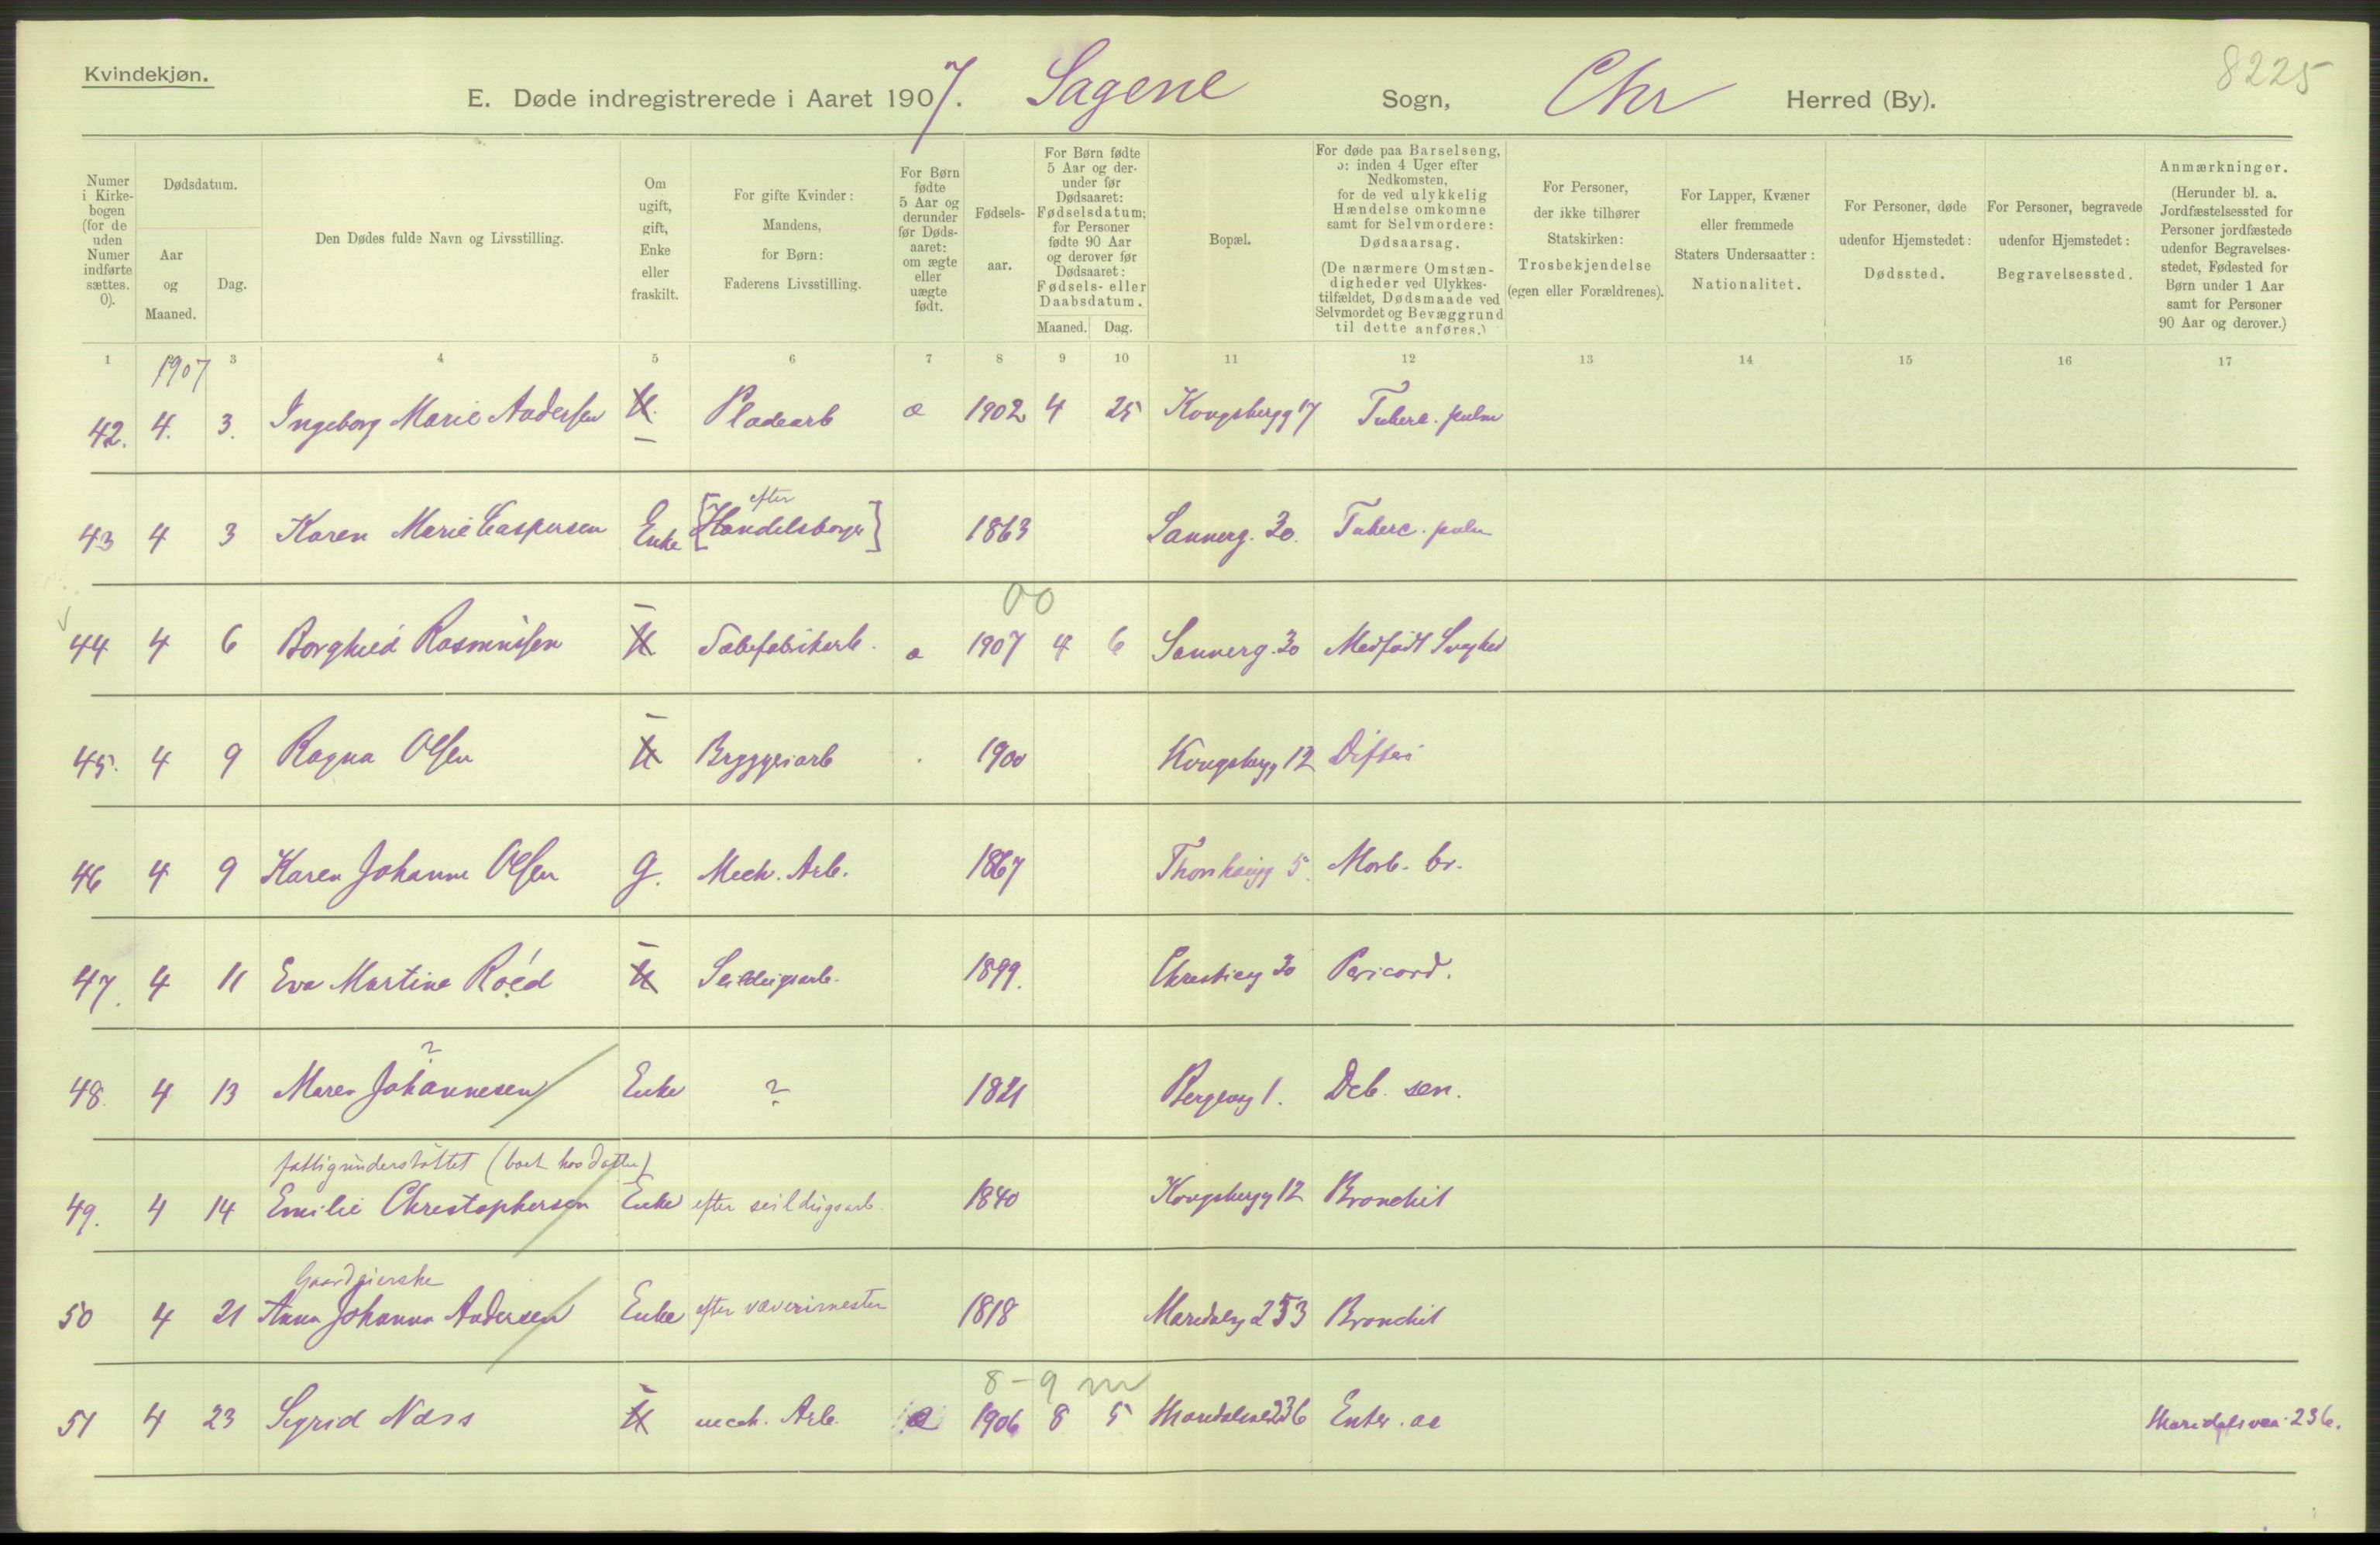 Kvindekjøn.
8225
E. Døde indregistrerede i Aaret 1907. Sagene Sogn, Chr Herred (By).
Numer i Kirkebogen (for de uden Numer indførte sættes. 0).
Dødsdatum.
Aar og Maaned.
Dag.
Den Dødes fulde Navn og Livsstilling.
Om ugift, gift, Enke eller fraskilt.
For gifte Kvinder: Mandens, for Børn: Faderens Livsstilling.
For Børn fødte 5 Aar og derunder før Dødsaaret: om ægte eller uægte født.
Fødselsaar.
For Børn fødte 5 Aar og derunder før Dødsaaret: Fødselsdatum; for Personer fødte 90 Aar og derover før Dødsaaret: Fødsels- eller Daabsdatum.
Maaned. Dag.
Bopæl.
For døde paa Barselseng, ɔ: inden 4 Uger efter Nedkomsten, for de ved ulykkelig Hændelse omkomne samt for Selvmordere: Dødsaarsag. (De nærmere Omstændigheder ved Ulykkestilfældet, Dødsmaade ved Selvmordet og Bevæggrund til dette anføres.)
For Personer, der ikke tilhører Statskirken: Trosbekjendelse (egen eller Forældrenes).
For Lapper, Kvæner eller fremmede Staters Undersaatter: Nationalitet.
For Personer, døde udenfor Hjemstedet: Dødssted.
For Personer, begravede udenfor Hjemstedet: Begravelsessted.
Anmærkninger. (Herunder bl. a. Jordfæstelsessted for Personer jordfæstede udenfor Begravelsesstedet, Fødested for Børn under 1 Aar samt for Personer 90 Aar og derover.)
1 3 4 5 6 7 8 9 10 11 12 13 14 15 16 17
1907
42. 4. 3. Ingeborg Marie Andersen U. Pladearb æ 1902 4 25 Kongsbergg 17 Tuberc. pulm
efter
43 4 3 Karen Marie Caspersen Enke [Handelsborger] 1863 Sannerg. 30. Tuberc. pulm
00
44 4 6 Borghild Rasmussen U Sæbefabrikarb. æ 1907 4 6 Sannerg. 30 Medfødt Svaghed
45. 4 9 Ragna Olsen U Bryggeriarb 1900 Kongsbergg 12 Difteri
46 4 9 Karen Johanne Olsen g. Mech. Arb. 1867 Thorshaugg 5. Morb. br.
47. 4 11 Eva Martine Roëd U Seildugsarb. 1899. Christieg 30 Pericard.
?
48. 4 13 Maren Johannesen Enke ? 1821 Bergsvg 1. Deb. sen.
fattigunderstøttet (boet hos datter)
49. 4 14 Emilie Christophersen Enke efter seildugsarb. 1840 Kongsbergg 12 Bronchit
Gaardgierske
50 4 21 Anna Johanna Andersen Enke efter væverimester 1818 Maridalsg 253 Bronchit
8-9 m
51 4 23 Sigrid Næss U mech. Arb. æ 1906 8 5 Maridalsve 236 Enter. ac Maridalsvei 236.